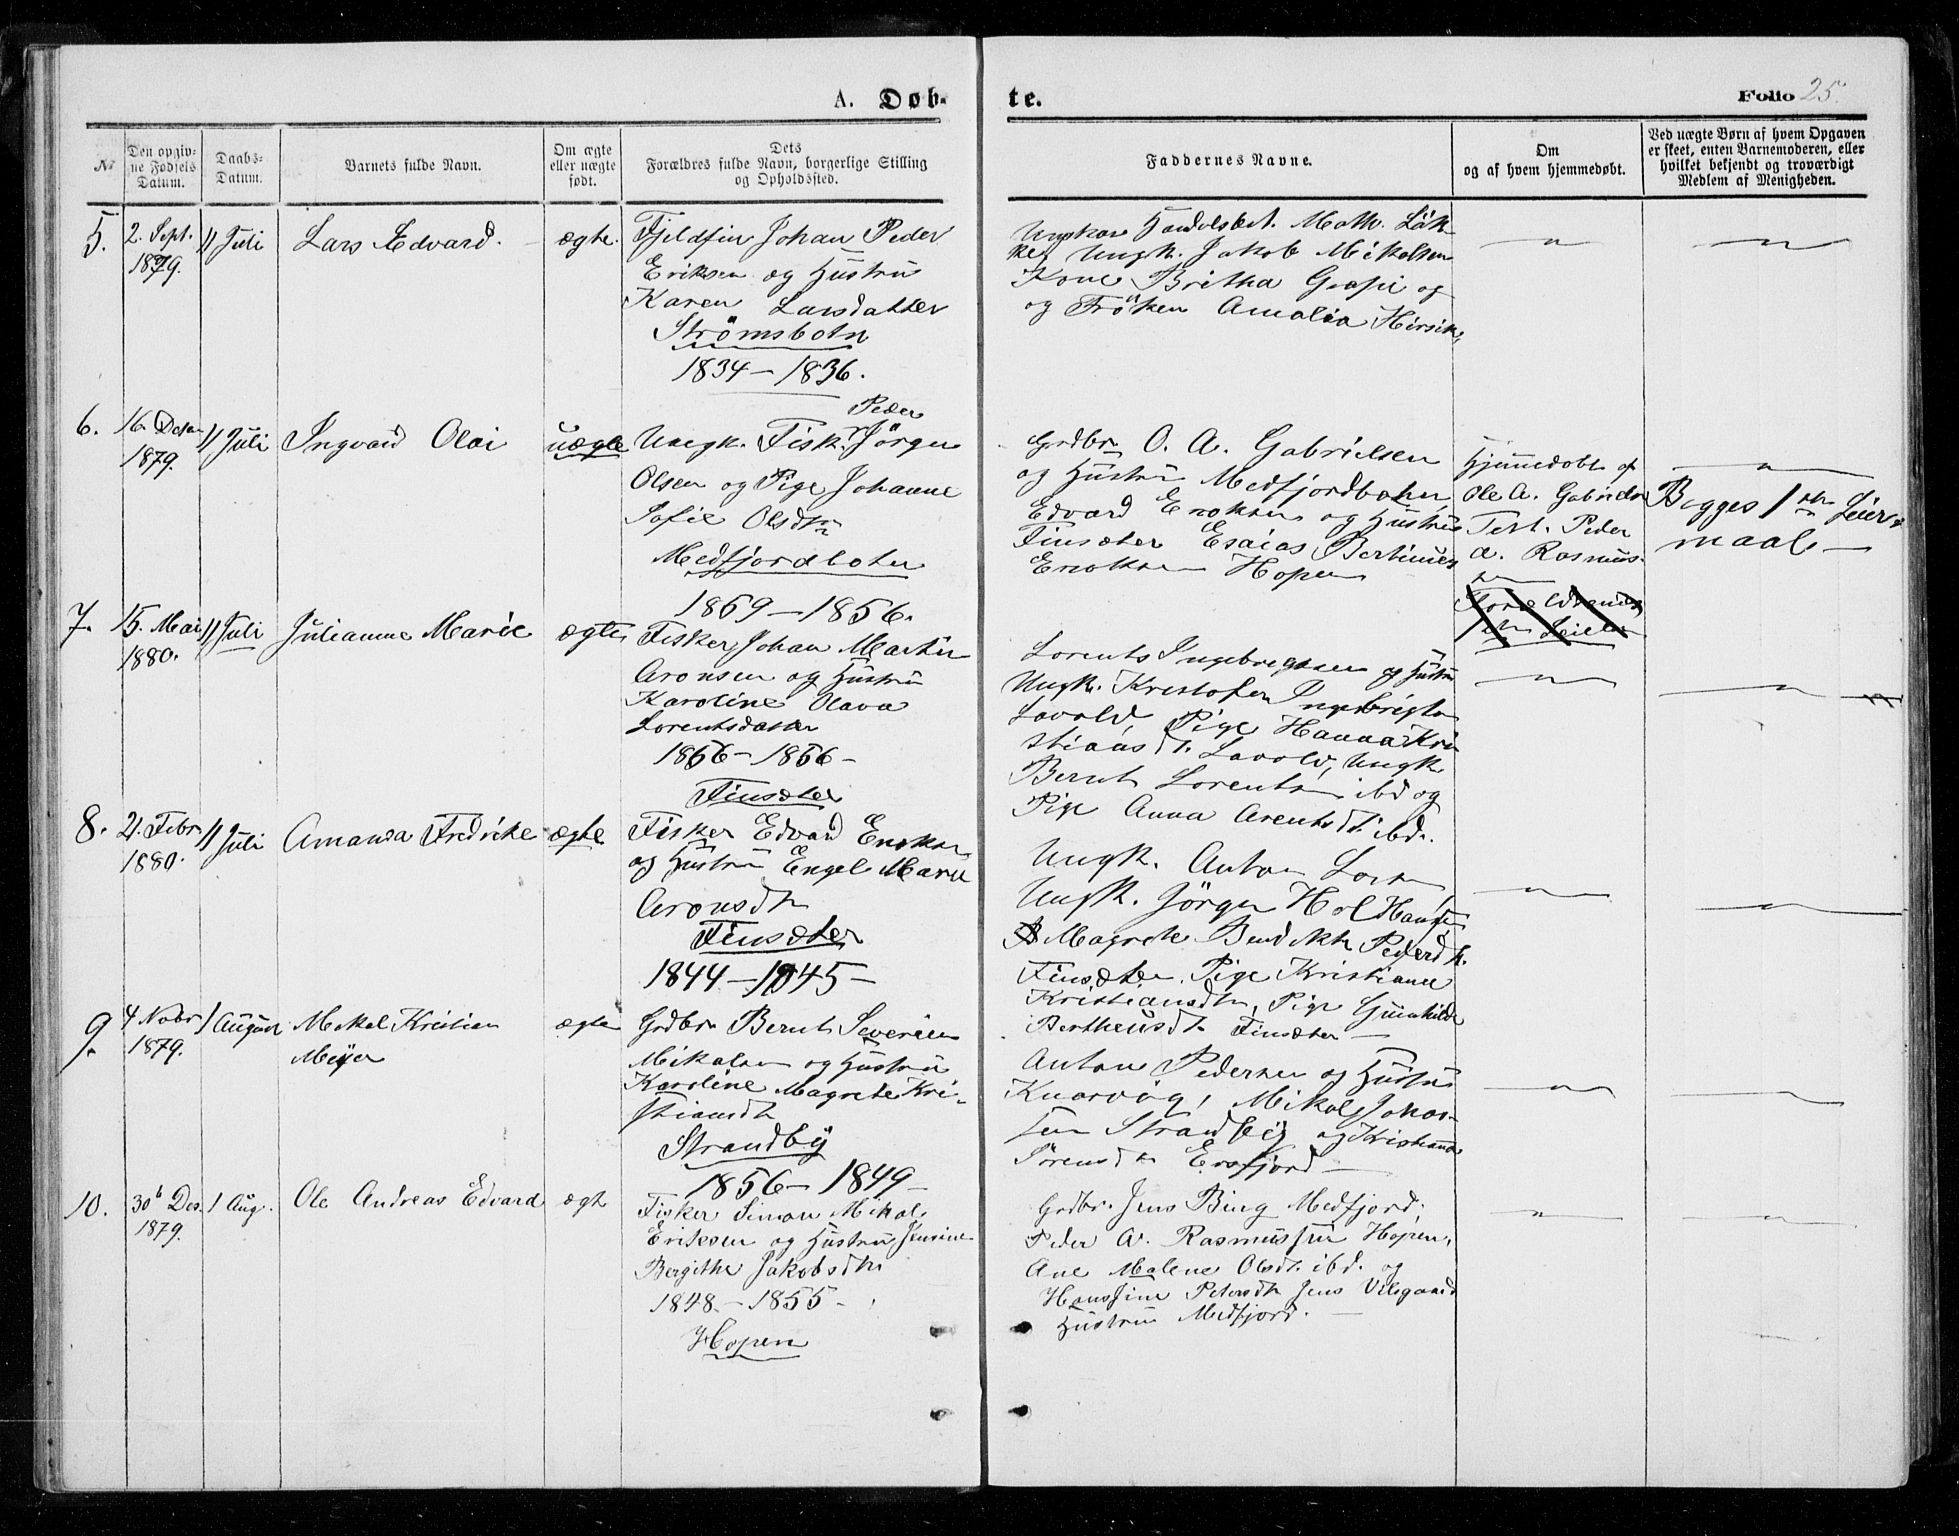 A. Døb-
te.
Folio 25.
№
Den opgiv-
ne Fødsels
Datum.
Daabs-
Datum.
Barnets fulde Navn.
Om ægte
eller uægte
født.
Dets
Forældres fulde Navn, borgerlige Stilling
og Opholdssted.
Faddernes Navne.
Om
og af hvem hjemmedøbt.
Ved uægte Børn af hvem Opgaven
er skeet, enten Barnemoderen, eller
hvilket bekjendt og troværdigt
Medlem af Menigheden.
5.
2. Sept.
1879.
11 Juli
Lars Edvard.
ægte.
Fjeldfin Johan Peder
Eriksen og Hustru
Karen Larsdatter
Strømsbotn
1834 – 1836.
Handelsbet. Math. Løk-
ke, Ungk. Jakob Mikalsen
Kone Britha og
og Frøken Amalia
6.
16. Desbr
1879.
11 Juli
Ingvard Olai
uægte
Peder
Ungk. Fisk. Jörgen
Olsen og Pige Johanne
Sofie Olsdtr
Medfjordboten
1869 – 1856.
Grdbr. O. A. Gabrielsen
og Hustru Medfjordboten
Edvard Enoksen og Hustru
Finsæter Esaias Bertinus
Enoksen Hopen
Hjemmedøbt af
Ole A. Gabrielsen
Test. Peder
A. Rasmus-
sen
Begges 1ste Leier-
maal –
7.
15. Mai
1880.
11 Juli
Julianne Marie
ægte
Fisker Johan Martin
Aronsen og Hustru
Karoline Olava
Lorentsdatter
1856 – 1856 –
Finsæter
Lorents Ingebrigtsen og Hustru
Ungk. Kristofer Ingebrigtsen
Lavold, Pige Hanna Kri-
stiansdt. Lavold, Ungk.
Bernt Lorentsen ibd og
Pige Anna Arentsdt. ibd.
8.
21. Febr
1880.
11 Juli
Amanda Fredrike
ægte
Fisker Edvard Enoksen
og Hustru Engel Marie
Aronsdtr
Finsæter
1844 – 1845 –
Ungk. Anton
Ungk. Jörgen Hol
Magrete Pedersdtr.
Finsæter. Pige Kristiane
Kristiansdtr, Pige Gunhilde
Bertheusdtr Finsæter –
9.
4 Novbr
1879.
1 August
Mekal Kristian
Meÿer
ægte
Grdbr Bernt Severin
Mikalsen og Hustru
Karoline Magrete Kri-
stiansdtr
Strandbÿ
1856 – 1849 –
Anton Pedersen og Hustru
Knarvög, Mikal Johan-
sen Strandbÿ og Kristianna
Sörensdtr Ersfjord –
10.
30te Des.
1879.
1 Aug.
Ole Andreas Edvard
ægte
Fisker Simon Mikal
Eriksen og Hustru Jensine
Bergithe Jakobsdtr
1848. – 1855 –
Hopen
Grdbr. Jens Bing Medfjord.
Peder A. Rasmussen Hopen,
Ane Malene Olsdt. ibd. og
Hansine Petersdtr Jens Vilsgaard
Hustru Medfjord. –